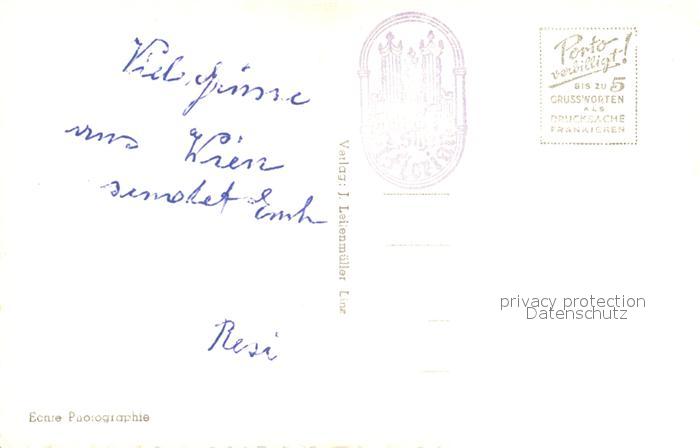 Viel Grüsse
aus Wien
sendet Euch
Resi
Echte Photographie
Verlag: J. Leitenmüller Linz
St.
Florian
Porto
verbilligt!
BIS ZU 5
GRUSSWORTEN
ALS
DRUCKSACHE
FRANKIEREN
privacy protection
Datenschutz